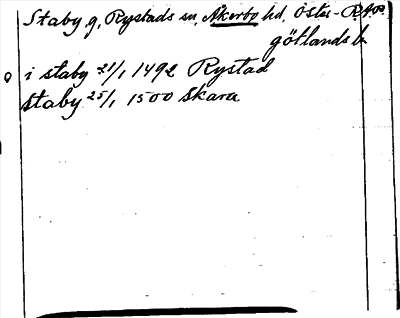 Staby g, Rystads sn, Åkerbo hd, Öster-
götlands l.
i staby 21/1 1492 Rystad
staby 25/1 1500 Skara